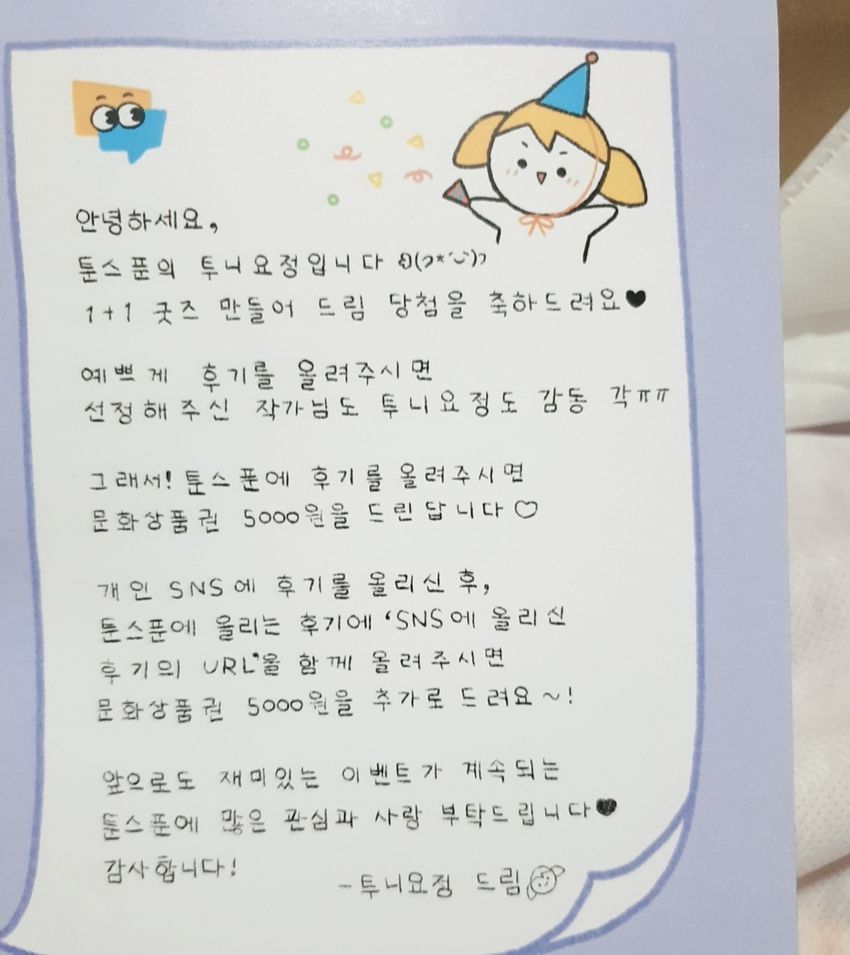 안녕하세요,
툰스푼의 투니요정입니다 ໒(૭*´◡`)૭
1+1 굿즈 만들어 드림 당첨을 축하드려요♥
예쁘게 후기를 올려주시면
선정해주신 작가님도 투니요정도 감동 각ㅠㅠ
그래서! 툰스푼에 후기를 올려주시면
문화상품권 5000원을 드린답니다♡
개인 SNS에 후기를 올리신 후,
툰스푼에 올리는 후기에 'SNS에 올리신
후기의 URL'을 함께 올려주시면
문화상품권 5000원을 추가로 드려요~!
앞으로도 재미있는 이벤트가 계속되는
툰스푼에 많은 관심과 사랑 부탁드립니다♥
감사합니다!
-투니요정 드림